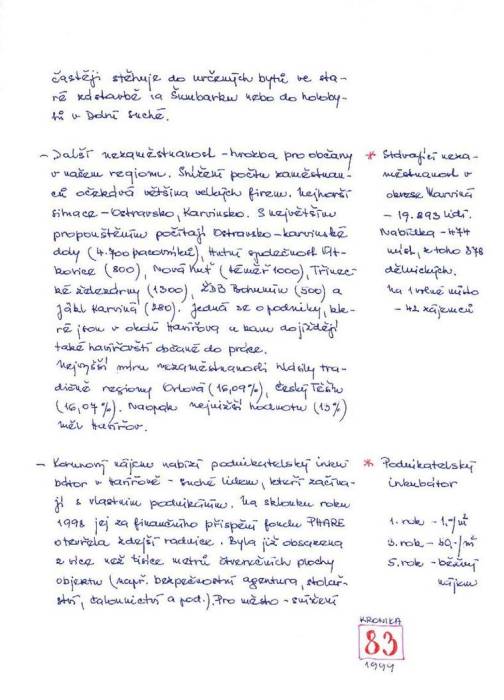 častěji stěhuje do určených bytů ve sta-
ré zástavbě na Šumbarku nebo do holoby-
tů v Dolní Suché.
- Další nezaměstnanost - hrozba pro občany
v našem regionu. Snížení počtu zaměstnan-
ců očekává většina velkých firem. Nejhorší
situace - Ostravsko, Karvinsko. S největším
propouštěním počítají Ostravsko-karvinské
doly (4.700 pracovníků), Hutní společnost Vít-
kovice (800), Nová Huť (téměř 1000), Třinec-
ké železárny (1300), ŽDB Bohumín (500) a
Jäkl Karviná (280). Jedná se o podniky, kte-
ré jsou v okolí Havířova a kam dojíždějí
také havířovští občané do práce.
Nejvyšší míru nezaměstnanosti hlásily tra-
dičně regiony Orlová (16,09%), Český Těšín
(16,07%). Naopak nejnižší hodnotu (13%)
měl Havířov.
* Stávající neza-
městnanost v
okrese Karviná
- 19.893 lidí.
Nabídka - 474
míst, z toho 378
dělnických.
Na 1 volné místo
- 42 zájemců
- Korunový nájem nabízí podnikatelský inku
bátor v Havířově - Suché lidem, kteří začína-
jí s vlastním podnikáním. Na sklonku roku
1998 jej za finančního přispění fondu PHARE
otevřela zdejší radnice. Byla již obsazena
z více než tisíce metrů čtverečních plochy
objektu (např. bezpečnostní agentura, stolař-
ství, čalounictví a pod.). Pro město - snížení
* Podnikatelský
inkubátor
1. rok - 1,-/m²
3. rok - 50,-/m²
5. rok - běžný
nájem
KRONIKA
83
1999